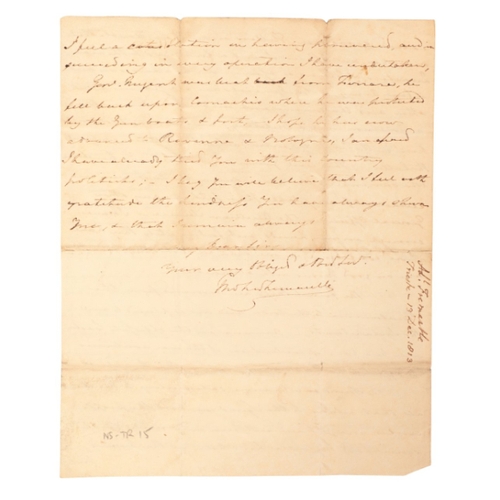 I feel a consolation in having honoured, and in
succeeding in every operation I have undertaken,
Gen. Nugent was beat back from Ferrara, he
fell back upon Comachio where he was protected
by the Gun boats & fort. I hope he has now
advanced to Ravenna & Bologna, I am afraid
I have already tired You with this Country
politicks; – I beg You will believe that I feel with
gratitude the kindness You have always shewn
me, & that I remain always
Your very obliged
Thos. Fras. Fremantle
Adl. Fremantle
Trieste 17 Dec. 1813
NS-TR 15.